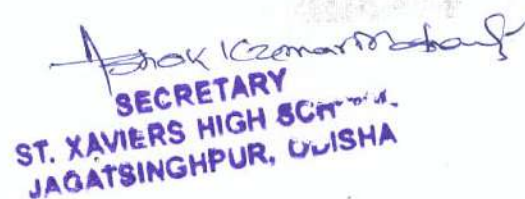 Ashok Kumar Mohanty
SECRETARY
ST. XAVIERS HIGH SCH
JAGATSINGHPUR, ODISHA